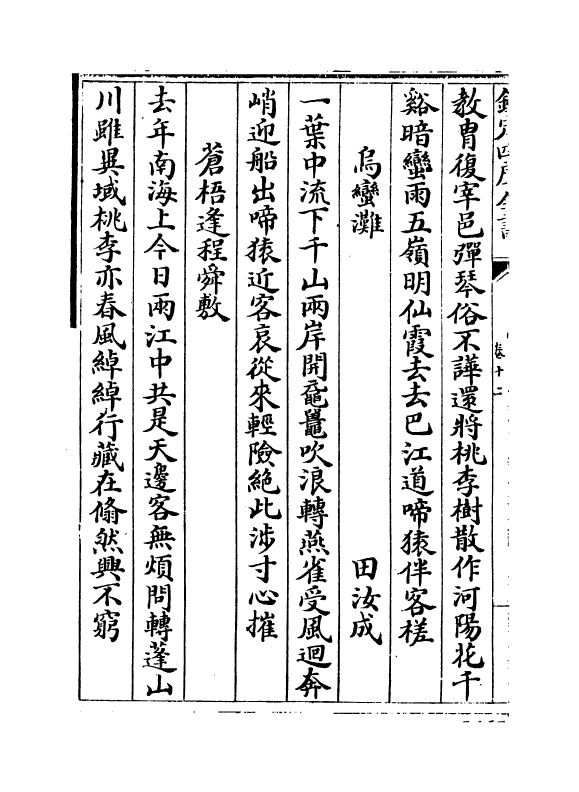 欽定四庫全書
卷十二
教胄復宰邑彈琴俗不譁還將桃李樹散作河陽花千
谿暗蠻雨五嶺明仙霞去去巴江道啼猿伴客槎
烏蠻灘 田汝成
一葉中流下千山兩岸開黿鼉吹浪轉燕雀受風迴奔
峭迎船出啼猿近客哀從來輕險絶此涉寸心摧
蒼梧逢程舜敷
去年南海上今日兩江中共是天邊客無煩問轉蓬山
川雖異域桃李亦春風綽綽行藏在翛然興不窮